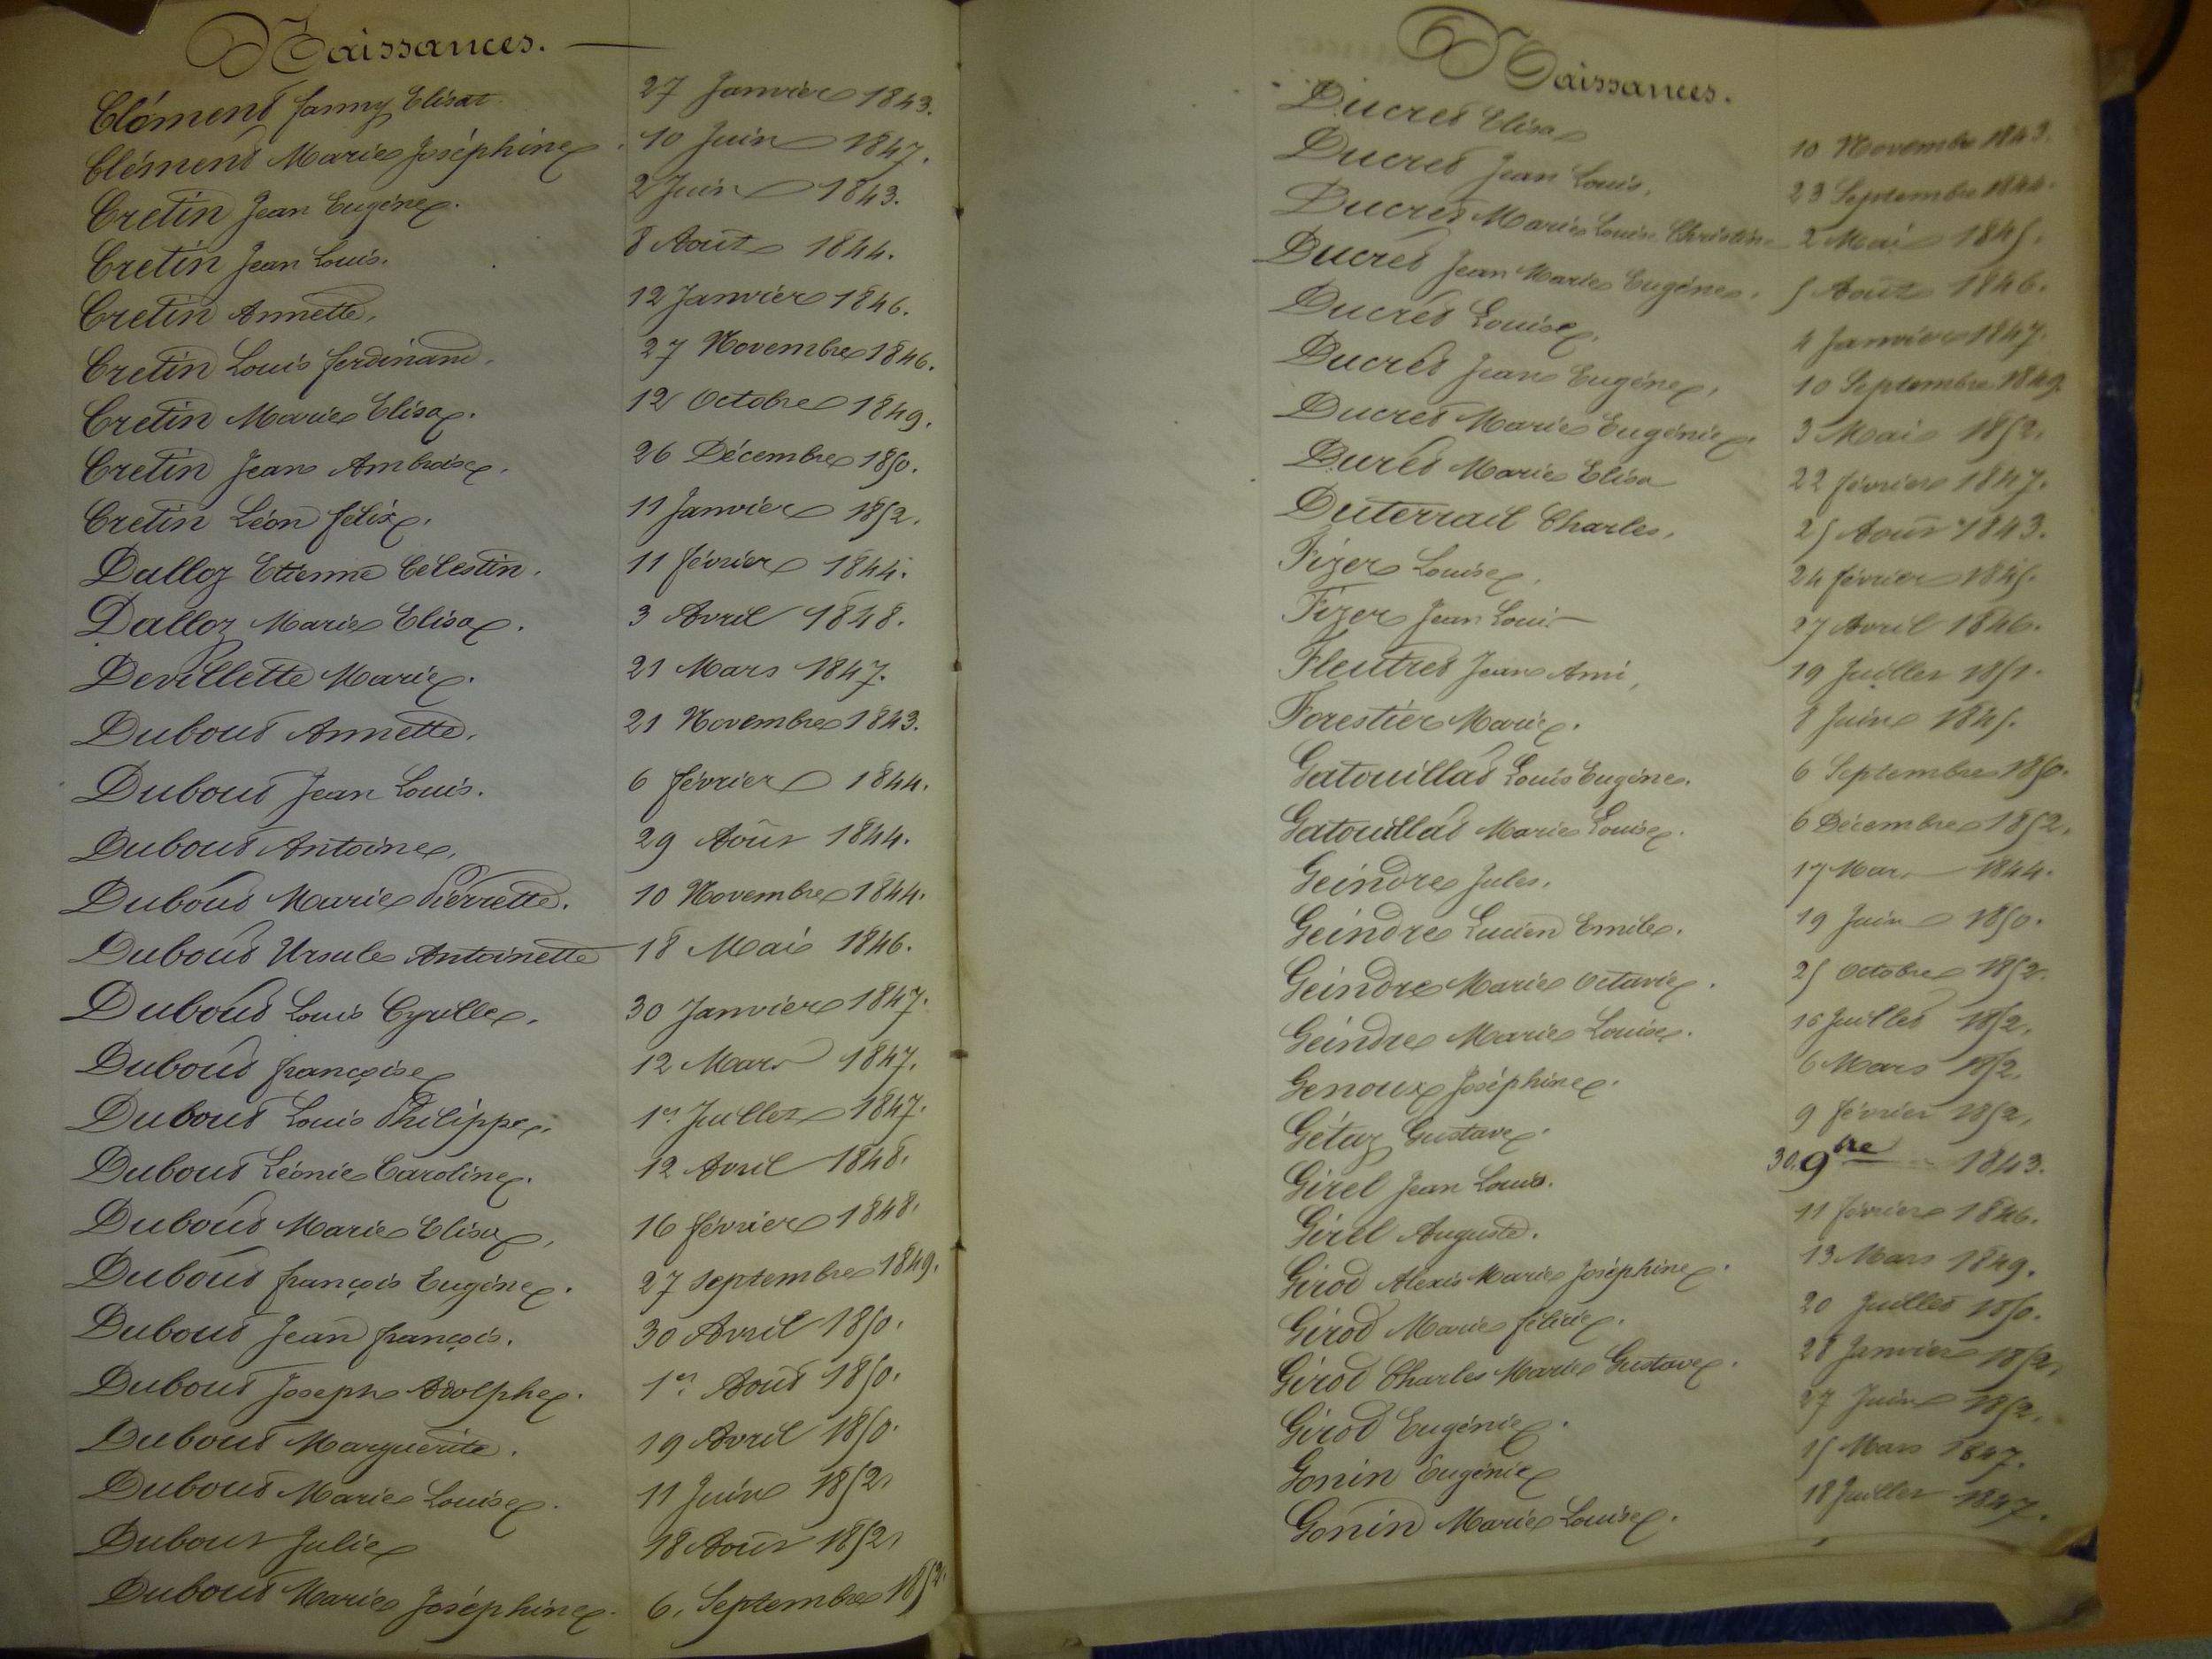 Naissances.
Clément fanny Elisa 27 Janvier 1843.
Clément Marie Joséphine 10 Juin 1847.
Cretin Jean Eugène. 2 Juin 1843.
Cretin Jean Louis. 8 Août 1844.
Cretin Annette, 12 Janvier 1846.
Cretin Louis ferdinand. 27 Novembre 1846.
Cretin Marie Elisa. 12 Octobre 1849.
Cretin Jean Ambroise. 26 Décembre 1850.
Cretin Léon félix. 11 Janvier 1852.
Dalloz Etienne Célestin. 11 février 1844.
Dalloz Marie Elisa. 3 Avril 1848.
Devillette Marie. 21 Mars 1847.
Dubout Annette. 21 Novembre 1843.
Dubout Jean Louis. 6 février 1844.
Dubout Antoine, 29 Août 1844.
Dubout Marie Pierrette. 10 Novembre 1844.
Dubout Ursule Antoinette 18 Mai 1846.
Dubout Louis Cyrille. 30 Janvier 1847.
Dubout françoise 12 Mars 1847.
Dubout Louis Philippe. 1er Juillet 1847.
Dubout Léonie Caroline. 12 Avril 1848.
Dubout Marie Elisa, 16 février 1848.
Dubout françois Eugène. 27 septembre 1849.
Dubout Jean françois. 30 Avril 1850.
Dubout Joseph Adolphe. 1er Août 1850.
Dubout Marguerite. 19 Avril 1850.
Dubout Marie Louise. 11 Juin 1852.
Dubout Julie 18 Août 1852.
Dubout Marie Joséphine. 6. Septembre 1852.
Naissances.
Ducret Elisa 10 Novembre 1843.
Ducret Jean Louis. 23 Septembre 1844.
Ducret Marie Louise Christine 2 Mai 1845.
Ducret Jean Marie Eugène. 5 Août 1846.
Ducret Louise, 4 Janvier 1847.
Ducret Jean Eugène, 10 Septembre 1849.
Ducret Marie Eugénie. 3 Mai 1852.
Duret Marie Elisa 22 février 1847.
Duterrail Charles. 25 Août 1843.
Fizer Louise, 24 février 1845.
Fizer Jean Louis 27 Avril 1846.
Fleutret Jean Ami, 19 Juillet 1851.
Forestier Marie. 8 Juin 1845.
Gatouillat Louis Eugène. 6 Septembre 1850.
Gatouillat Marie Louise. 6 Décembre 1852.
Geindre Jules. 17 Mars 1844.
Geindre Lucien Emile. 19 Juin 1850.
Geindre Marie Octavie. 25 Octobre 1852.
Geindre Marie Louise. 16 Juillet 1852.
Genoux Joséphine. 6 Mars 1852.
Gétaz Gustave. 9 février 1852,
Girel Jean Louis. 30. 9bre 1843.
Girel Auguste. 11 février 1846.
Girod Alexis Marie Joséphine. 13 Mars 1849.
Girod Marie félicie. 20 Juillet 1850.
Girod Charles Marie Gustave. 28 Janvier 1852,
Girod Eugénie. 27 Juin 1852.
Gonin Eugénie 15 Mars 1847.
Gonin Marie Louise. 18 Juillet 1847.